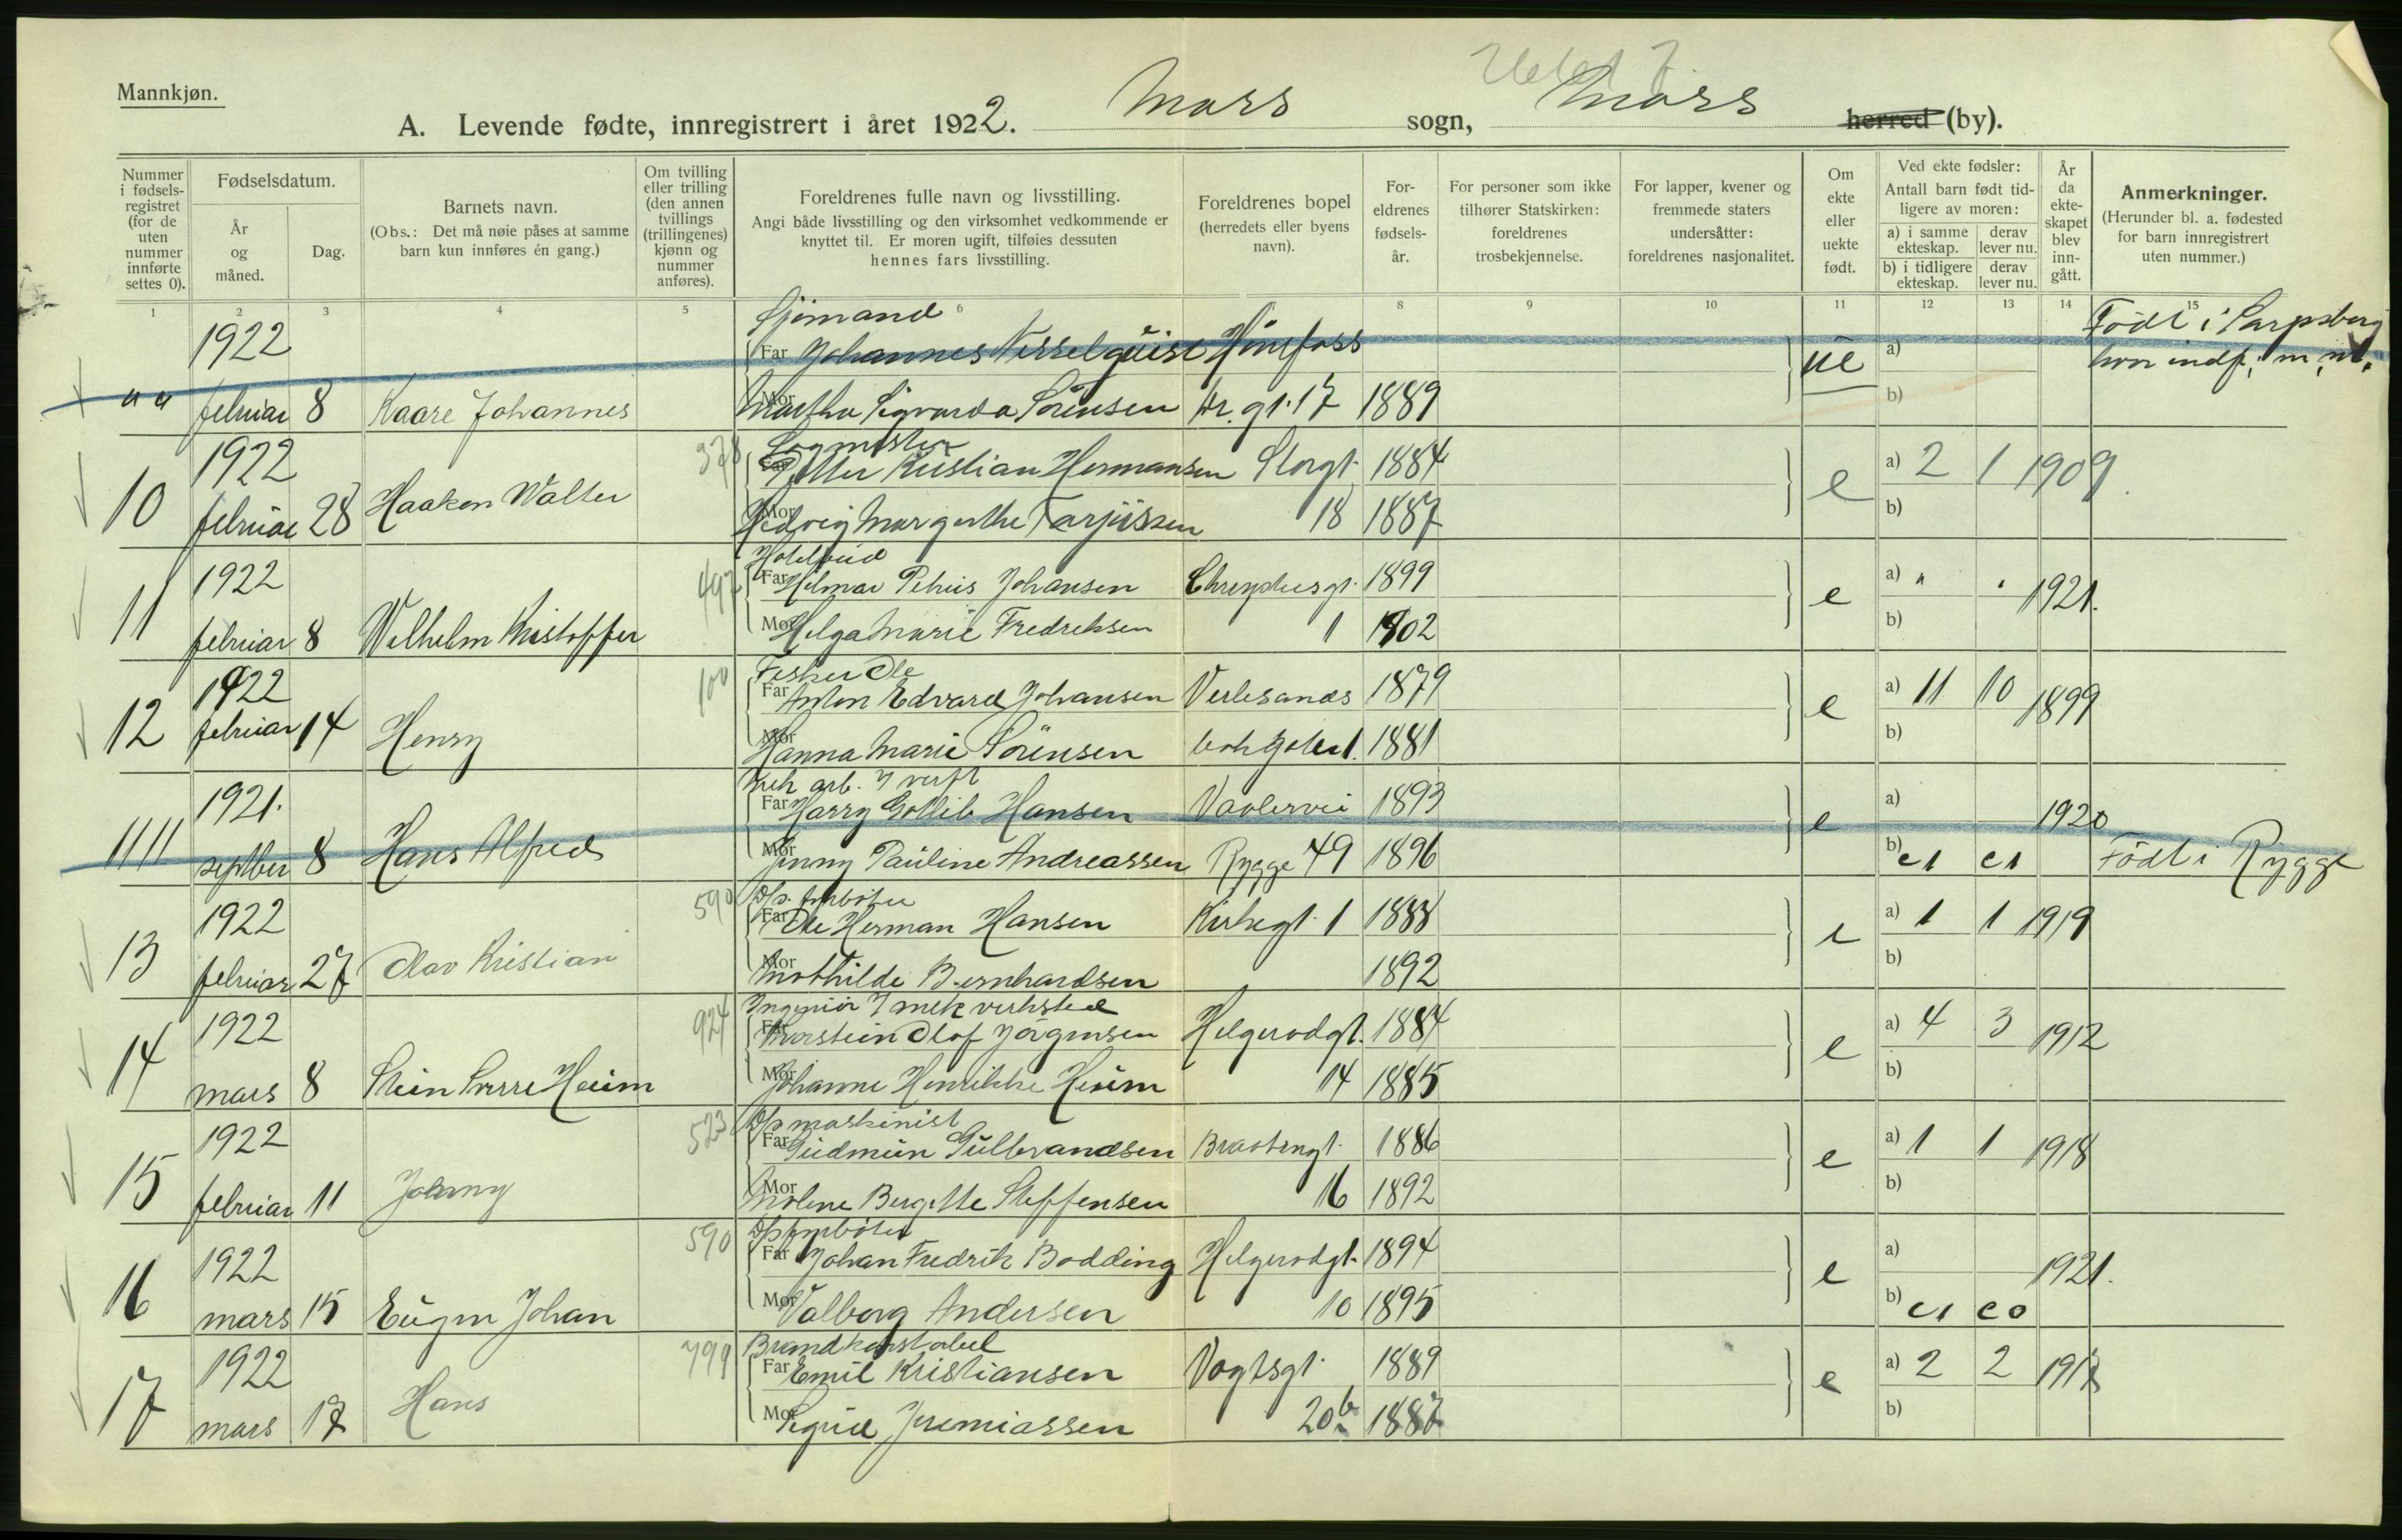 Mannkjøn.
A. Levende fødte, innregistrert i året 1922. Moss sogn, Moss herred (by).
Nummer i fødsels-registret (for de uten nummer innførte settes 0).
Fødselsdatum.
År og måned.
Dag.
Barnets navn.
(Obs.: Det må nøie påses at samme barn kun innføres én gang.)
Om tvilling eller trilling (den annen tvillings (trillingenes) kjønn og nummer anføres).
Foreldrenes fulle navn og livsstilling.
Angi både livsstilling og den virksomhet vedkommende er knyttet til. Er moren ugift, tilføies dessuten hennes fars livsstilling.
Foreldrenes bopel (herredets eller byens navn).
For-eldrenes fødsels-år.
For personer som ikke tilhører Statskirken: foreldrenes trosbekjennelse.
For lapper, kvener og fremmede staters undersåtter: foreldrenes nasjonalitet.
Om ekte eller uekte født.
Ved ekte fødsler:
Antall barn født tid-ligere av moren:
a) i samme ekteskap.
derav lever nu.
b) i tidligere ekteskap.
derav lever nu.
År da ekte-skapet blev inn-gått.
Anmerkninger.
(Herunder bl. a. fødested for barn innregistrert uten nummer.)
1 2 3 4 5 6 8 9 10 11 12 13 14 15
1922 Sjömand Födt i Sarpsborg
Far Johannes Hönefoss ue a) hvor indf. m. nr.
" " februar 8 Kaare Johannes Mor Martha Sigvarda Sörensen gt. 17 1889 b)
1922 378
Far Petter Kristian Hermansen Storgt. 1884 e a) 2 1 1909.
10 februar 28 Haakon Walter Mor Hedvig Margrethe 18 1887 b)
1922 497 Hotelbud
Far Hilmar Petrus Johansen 1899 e a) " " 1921.
11 februar 8 Wilhelm Kristoffer Mor Helga Marie Fredriksen 1 1902 b)
1922 100 Fisker Ole
Far Anton Edvard Johansen Verlesands 1879 e a) 11 10 1899
12 februar 14 Henry Mor Hanna Marie Sörensen 1881 b)
1921. arb. verft
Far Harry Gotlib Hansen Vaalervei 1893 e a) 1920
septber 8 Hans Alfred Mor Jenny Pauline Andreassen Rygge 49 1896 b) e1 e1 Födt i Rygge
1922 590 D/s. fyrböter
Far Ole Herman Hansen Kirkegt. 1 1888 e a) 1 1 1919
13 februar 27 Olav Kristian Mor Mathilde Bernhardsen 1892 b)
1922 924 Ingeniör mek verksted
Far Thorstein Olof Jörgensen Helgerödgt. 1884 e a) 4 3 1912
14 mars 8 Stein Sverre Heim Mor Johanne Henrikke Heim 14 1885 b)
1922 523 D/s maskinist
Far Gudmun Gulbrandsen 1886 e a) 1 1 1918
15 februar 11 Johnny Mor Molene Bergitte Steffensen 16 1892 b)
1922 590 D/s fyrböter
Far Johan Fredrik Bodding Helgerödgt. 1894 e a) 1921.
16 mars 15 Eugen Johan Mor Valborg Andersen 10 1895 b) e1 e0
1922 799 Brandkonstabel
Far Emil Kristiansen Vogtsgt. 1889 e a) 2 2
17 mars 17 Hans Mor Sigrid Jeremiassen 20b 1887 b)